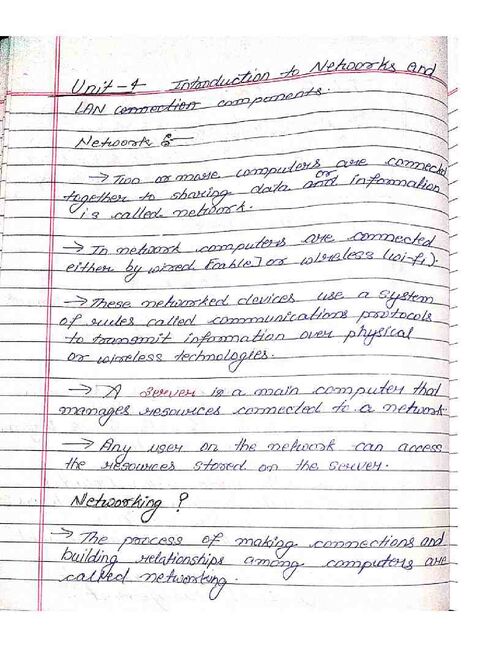 Unit-1 Introduction to Networks and
LAN connection components.
Network :-
→ Two or more computers are connected
together to sharing data and or information
is called network.
→ In network computers are connected
either by wired [cable] or wireless (wi-fi).
→ These networked devices use a system
of rules called communications protocols
to transmit information over physical
or wireless technologies.
→ A server is a main computer that
manages resources connected to a network
→ Any user on the network can access
the resources stored on the server.
Networking ?
→ The process of making connections and
building relationships among computers are
called networking.